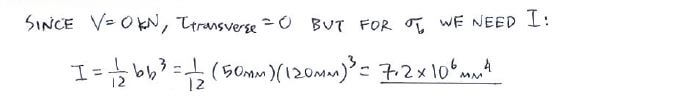 SINCE V=0kN, τtransverse=0 BUT FOR σb WE NEED I:
I = 1/12 bh³ = 1/12 (50mm)(120mm)³ = 7.2x10⁶ mm⁴